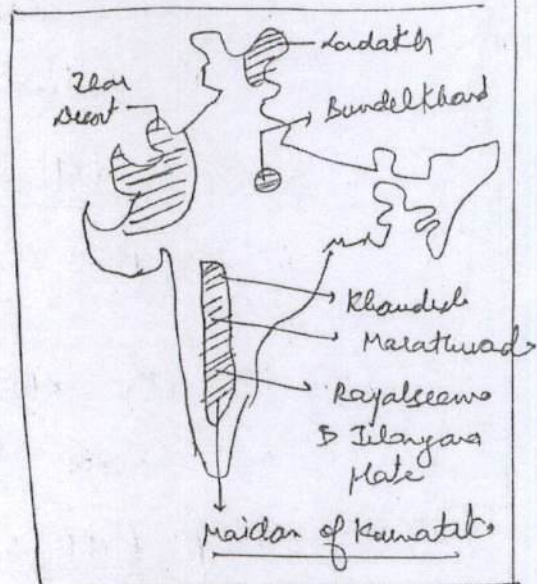 Ladakh
Thar
Desert
Bundelkhand
Khandesh
Marathwad
Rayalseema
& Telangana
Plate
Maidan of Karnatak